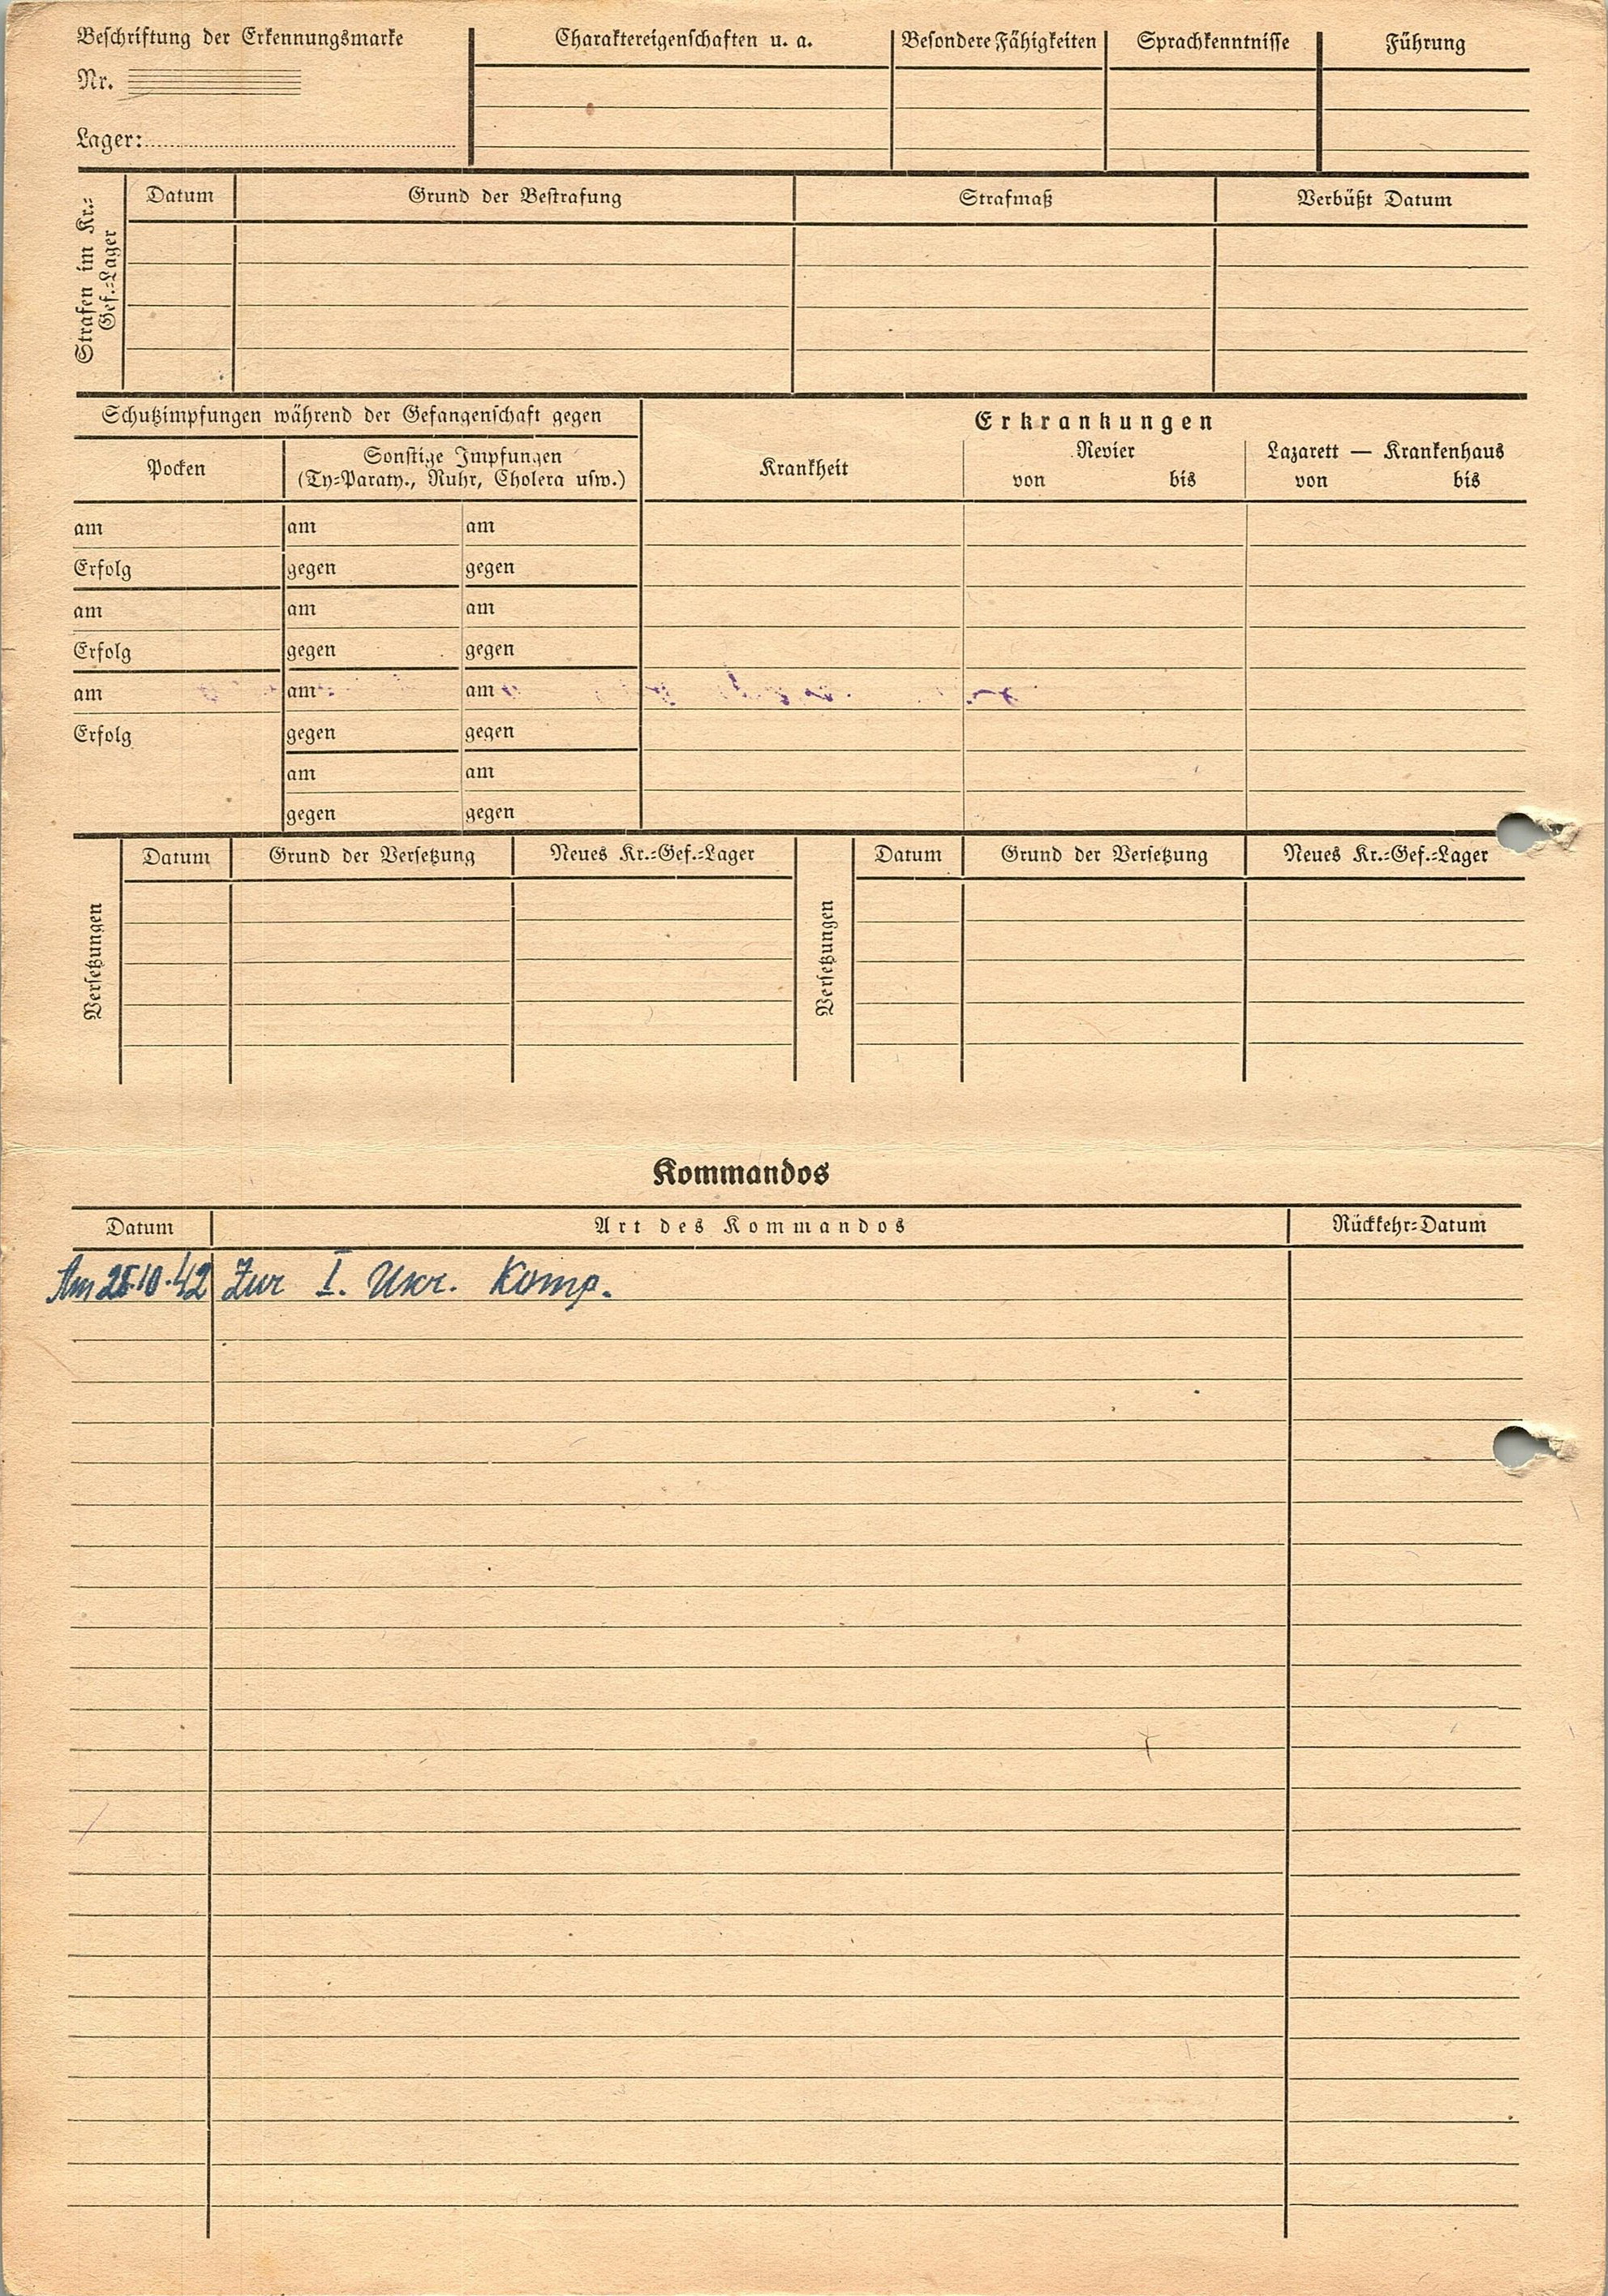 Beschriftung der Erkennungsmarke
Nr.
Lager:
Charaktereigenschaften u. a.
Besondere Fähigkeiten
Sprachkenntnisse
Führung
Strafen im Kr.=
Gef.=Lager
Datum
Grund der Bestrafung
Strafmaß
Verbüßt Datum
Schutzimpfungen während der Gefangenschaft gegen
Pocken
Sonstige Impfungen
(Ty=Paraty., Ruhr, Cholera usw.)
Erkrankungen
Krankheit
Revier
von bis
Lazarett — Krankenhaus
von bis
am am am
Erfolg gegen gegen
am am am
Erfolg gegen gegen
am am am
Erfolg gegen gegen
am am
gegen gegen
Versetzungen
Datum
Grund der Versetzung
Neues Kr.=Gef.=Lager
Versetzungen
Datum
Grund der Versetzung
Neues Kr.=Gef.=Lager
Kommandos
Datum
Art des Kommandos
Rückkehr=Datum
Am 10.42 Zur I. Ukr. Komp.